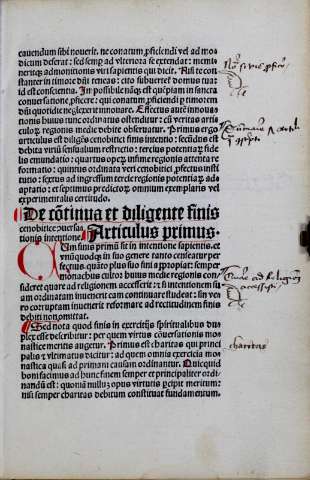 cauendum sibi nouerit. ne conatum ꝓficiendi vel ad mo-
dicum deserat: sed semꝑ ad vlteriora se extendat: memi-
neritqꝫ admonitionis viri sapientis qui dicit. Nisi te con-
stanter in timore dñi teneas: cito subuertet̉ domus tua:
id est conscientia. Impossibile nãqꝫ est quẽpiam in sancta
conuersatione ꝓficere: qui conatum ꝓficiendi ⁊ timorem
dñi quotidie neglexerit innouare. Effectus aũt innoua-
tionis huius tunc ordinatus ostenditur: cũ veritas arti-
culoꝝ regionis medie debite obseruatur. Primus ergo
articulus est diligẽs cenobitici finis intentio: secũdus est
debita viriũ sensualium restrictio: tercius potentiaꝝ fide-
lis emundatio: quartus opeꝝ infime regionis attenta re
formatio: quintus ordinata veri cenobitici ꝓfectus insti
tutio: sextus ad ingressum tercie regionis potentiaꝝ ada
ptatio: et septimus predictoꝝ omnium exemplaris vel
experimentalis certitudo.
De cõtinua et diligente finis
cenobitice
tionis intentione Articulus primus.
Cum finis primũ sit in intentione sapientis. et
vnũquodqꝫ in suo genere tanto censeatur per
fectius. quãto plus suo fini ꝓpiat: semper
monachus cultor huius medie regionis con
sideret quare ad religionem accesserit: ⁊ si intentionem su
am ordinatam inuenerit eam continuare studeat: sin ve
ro corruptam inuenerit reformare ad rectitudinem finis
debiti non omittat.
Sed nota quod finis in exercitijs spiritualibus du
plex esse describitur: per quem virtus cõuersationis mo
nastice meritis augetur. Primus est charitas qui princi
palis ⁊ vltimatus dicitur: ad quem omnis exercicia mo
nastica quasi ad primam causam ordinantur. Quicquid
boni facimus ad hunc finem semper et principaliter ordi-
nandũ est: quoniã nullũ opus virtutis ꝗcꝗ̃ meritum:
nisi semper charitas debitum constituat fundamentum.
charitas